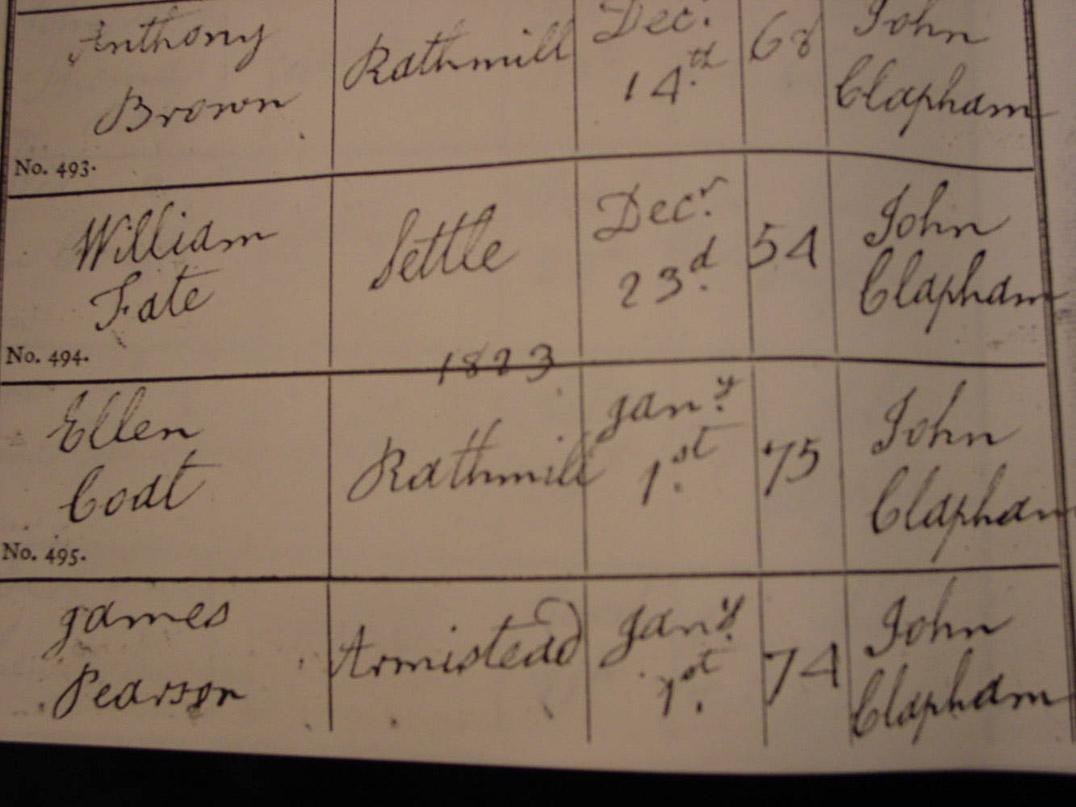 Anthony Brown Rathmill Decr. 14th. 68 John Clapham
No. 493.
William Tate Settle Decr. 23d. 54 John Clapham
No. 494.
1823
Ellen Coat Rathmill Jany. 1st. 75 John Clapham
No. 495.
James Pearson Armistead Jany. 1st. 74 John Clapham